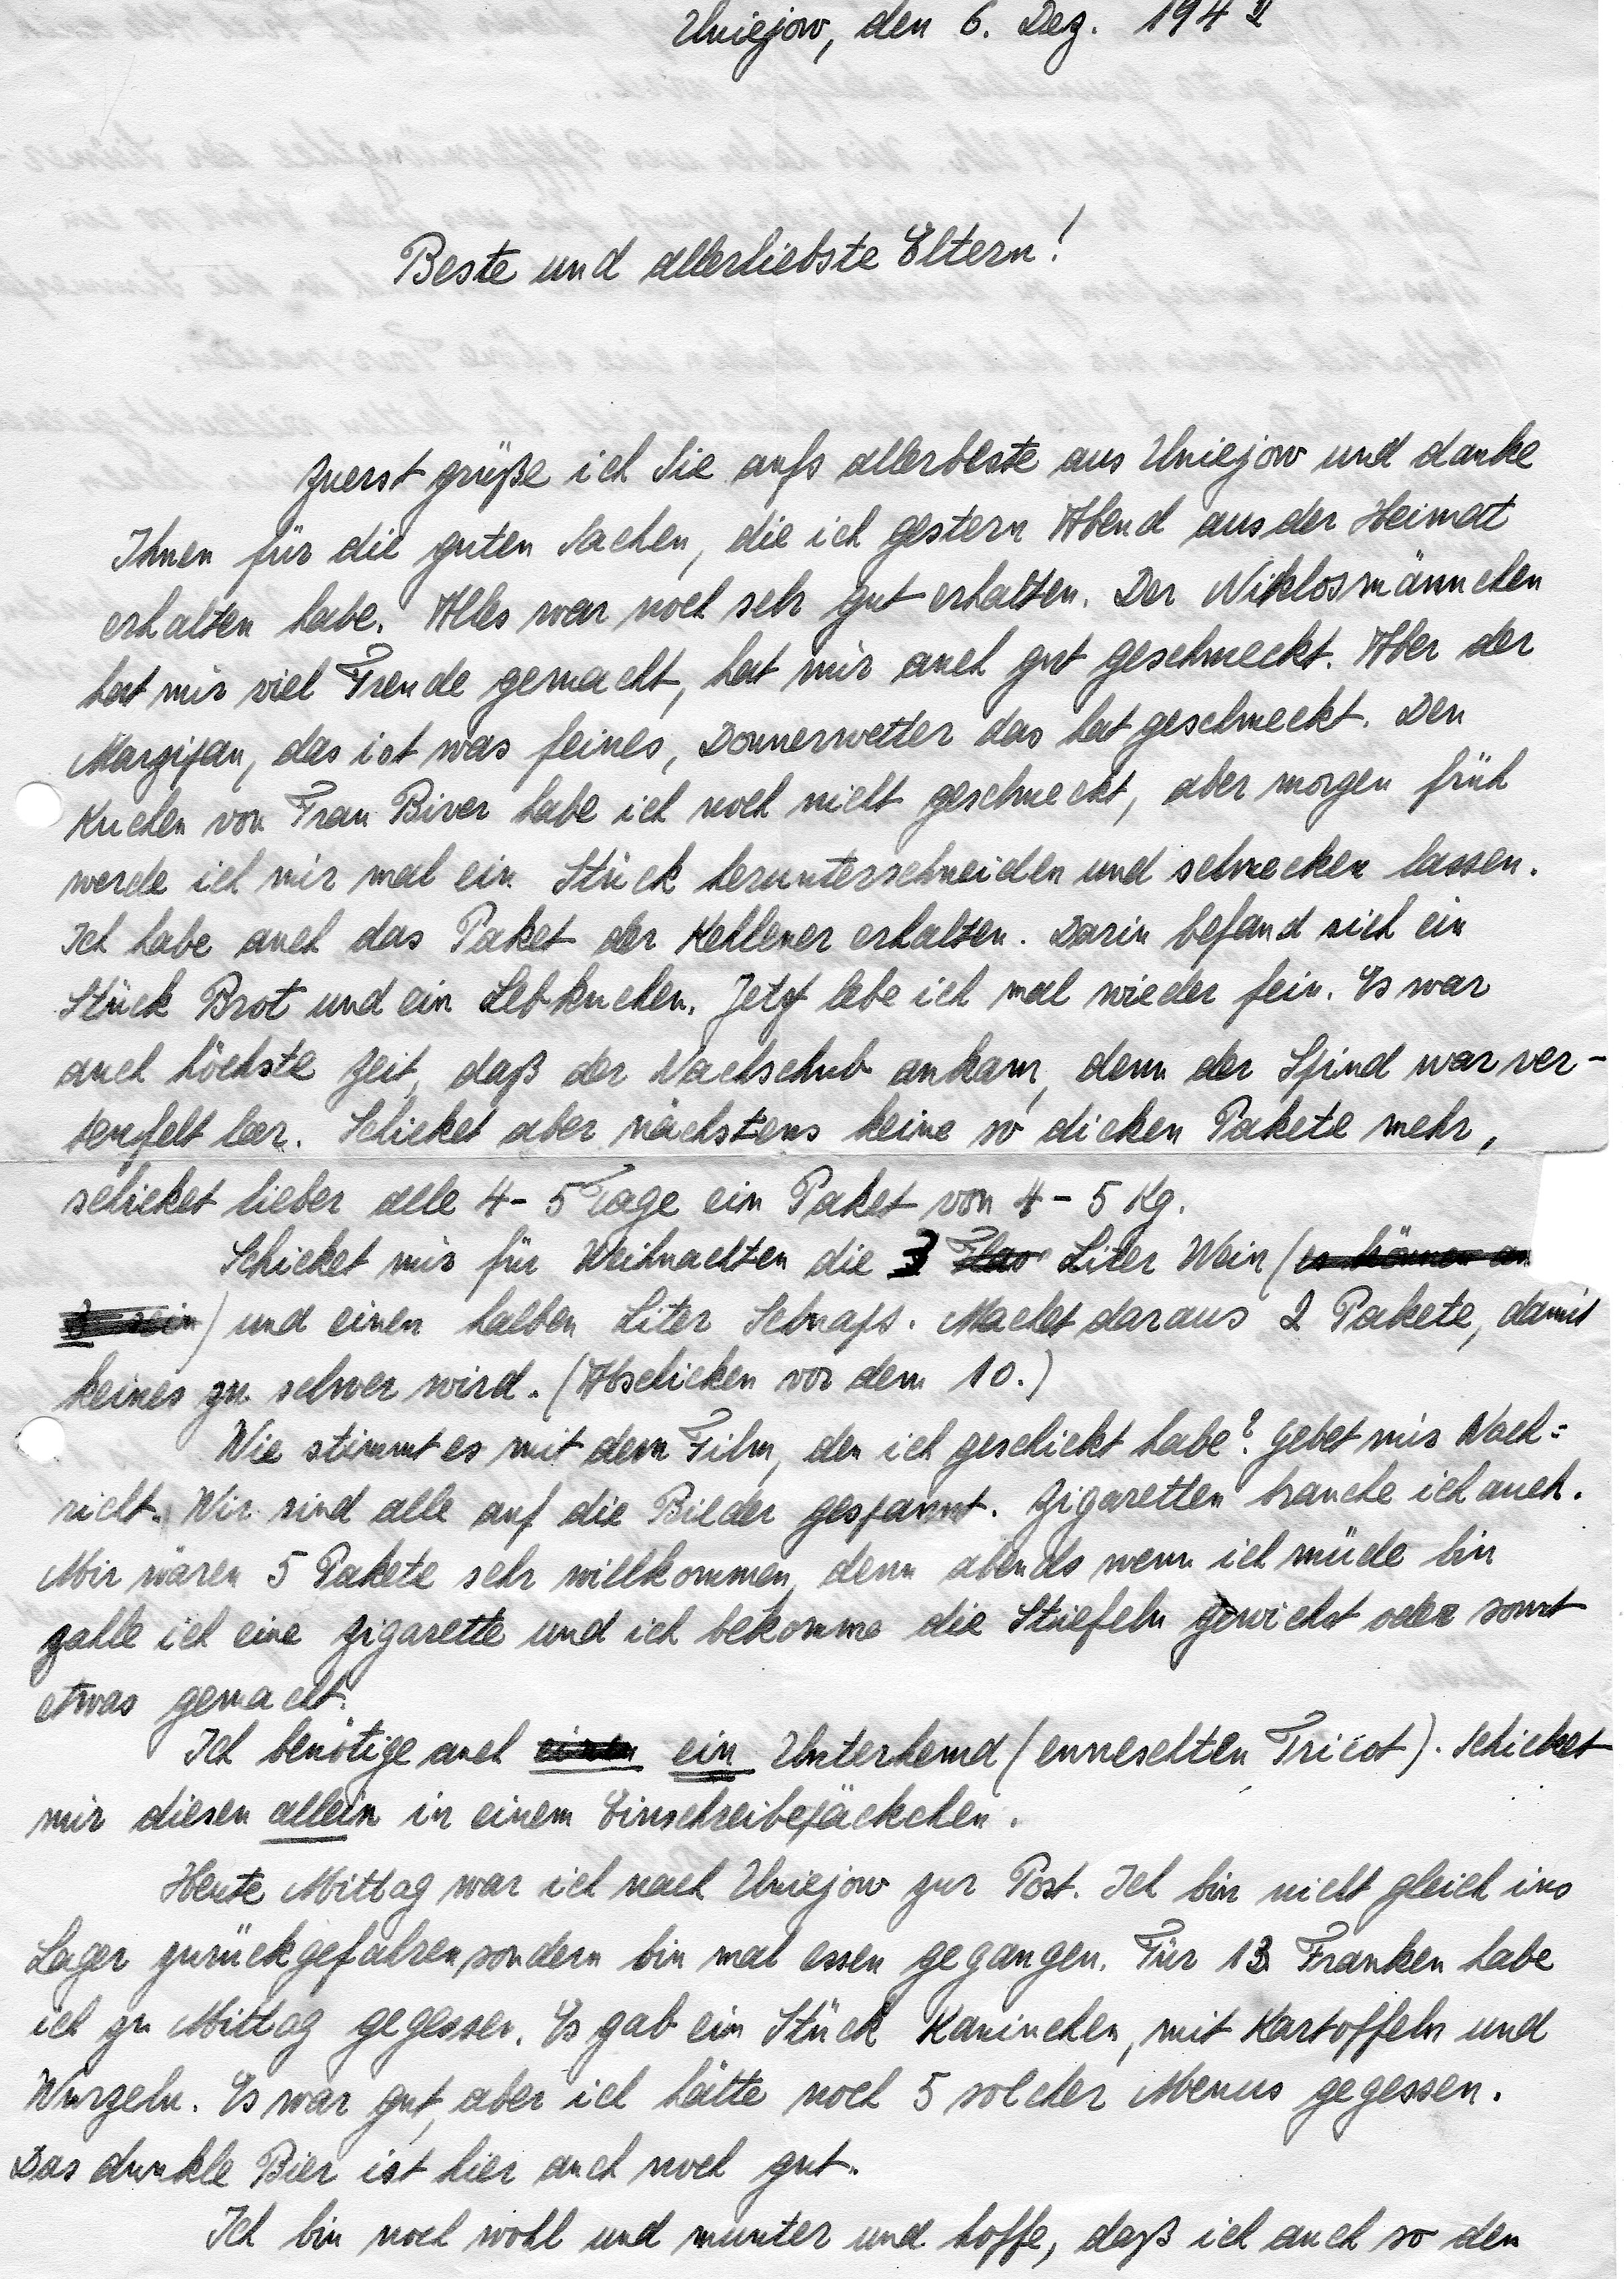 Uniejow, den 6. Dez. 194
Beste und allerliebste Eltern!
Zuerst grüße ich Sie aufs allerbeste aus Uniejow und danke
Ihnen für die guten Sachen, die ich gestern Abend aus der Heimat
erhalten habe. Alles war noch sehr gut erhalten. Der Niklosmännchen
hat mir viel Freude gemacht, hat mir auch gut geschmeckt. Aber der
Marzipan, das ist was feines, Donnerwetter das hat geschmeckt. Den
Kuchen von Frau Biver habe ich noch nicht geschmeckt, aber morgen früh
werde ich mir mal ein Stück herunterschneiden und schmecken lassen.
Ich habe auch das Paket der Kehlener erhalten. Darin befand sich ein
Stück Brot und ein Lebkuchen. Jetzt lebe ich mal wieder fein. Es war
auch höchste Zeit, daß der Nachschub ankam, denn der Spind war ver-
teufelt leer. Schicket aber nächstens keine so dicken Pakete mehr,
schicket lieber alle 4-5 Tage ein Paket von 4-5 Kg.
Schicket mir für Weihnachten die 3 Liter Wein (es können
sein) und einen halben Liter Schnaps. Machet daraus 2 Pakete, damit
keines zu schwer wird. (Abschicken vor dem 10.)
Wie stimmt es mit dem Film, den ich geschickt habe? Gebet mir Nach=
richt. Wir sind alle auf die Bilder gespannt. Zigaretten brauche ich auch.
Mir wären 5 Pakete sehr willkommen, denn abends wenn ich müde bin
zahle ich eine Zigarette und ich bekomme die Stiefeln gewichst oder sonst
etwas gemacht.
Ich benötige auch einen ein Unterhemd (enneschten Tricot). Schicket
mir diesen allein in einem Einschreibepäckchen.
Heute Mittag war ich nach Uniejow zur Post. Ich bin nicht gleich ins
Lager zurückgefahren, sondern bin mal essen gegangen. Für 13 Franken habe
ich zu Mittag gegessen. Es gab ein Stück Kaninchen, mit Kartoffeln und
Wurzeln. Es war gut, aber ich hätte noch 5 solcher Menus gegessen.
Das dunkle Bier ist hier auch noch gut.
Ich bin noch wohl und munter und hoffe, daß ich auch so den